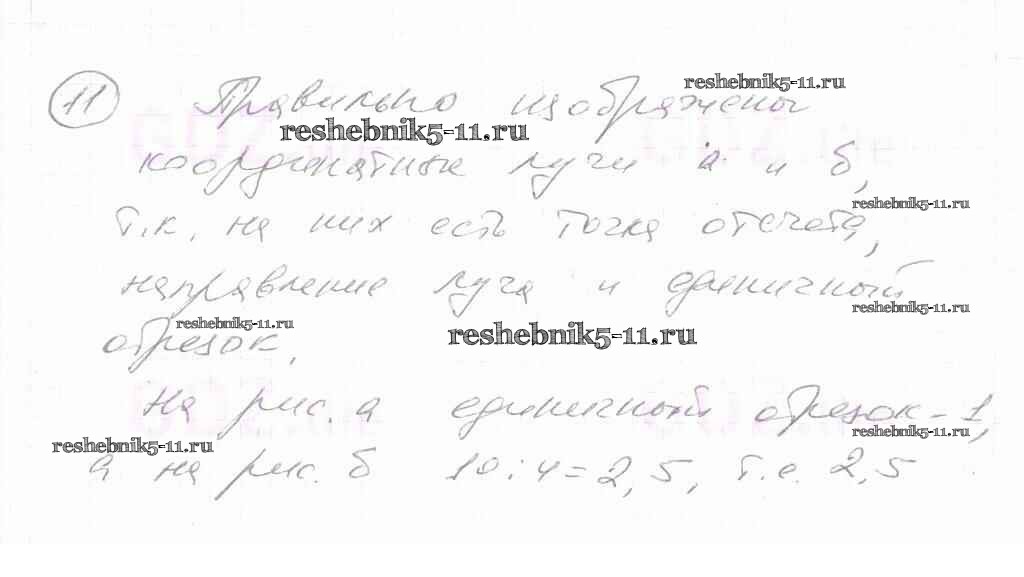 11 Правильно изображены
координатные лучи а и б,
т.к. на них есть точка отсчета,
направление луча и единичный
отрезок,
На рис. а единичный отрезок - 1,
а на рис. б 10:4=2,5, т.е. 2,5
reshebnik5-11.ru
reshebnik5-11.ru
reshebnik5-11.ru
reshebnik5-11.ru
reshebnik5-11.ru
reshebnik5-11.ru
reshebnik5-11.ru
reshebnik5-11.ru